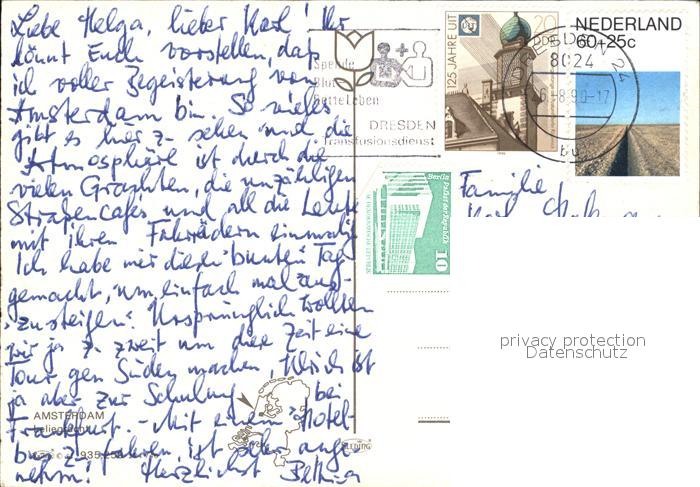 Liebe Helga, lieber Karl! Ihr
könnt Euch vorstellen, daß
ich voller Begeisterung von
Amsterdam bin. So vieles
gibt es hier zu sehen und die
Atmosphäre ist durch die
vielen Grachten, die unzähligen
Straßencafés und all die Leute
mit ihren Fahrrädern einmalig
Ich habe mir diesen bunten Tag
gemacht, um einfach mal aus-
zusteigen. Ursprünglich wollten
wir ja zu zweit um diese Zeit eine
Tour gen Süden machen, Ulrich ist
ja aber zur Schulung bei
Frankfurt. - Mit einem Hotel-
bus zu fahren, ist sehr ange-
nehm! Herzlichst Bettina
AMSTERDAM
935.250
Spende
Blut
Rette Leben
DRESDEN
Transfusionsdienst
125 JAHRE UIT
UIT
20
DDR
DRESDEN 24
8024
-8.90-17
bu
NEDERLAND
60+25c
Berlin
Palast der Republik
10
Familie
privacy protection
Datenschutz